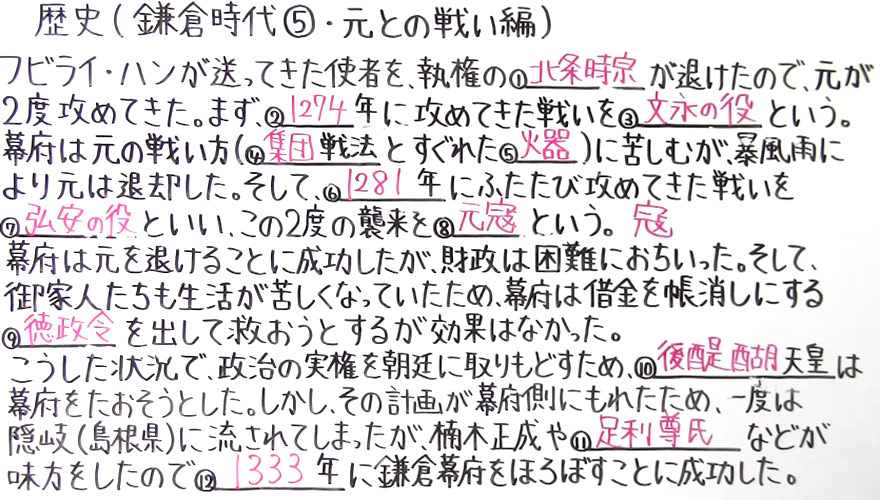 歴史(鎌倉時代⑤・元との戦い編)
フビライ・ハンが送ってきた使者を、執権の①北条時宗が退けたので、元が
2度攻めてきた。まず、②1274年に攻めてきた戦いを③文永の役という。
幕府は元の戦い方(④集団戦法とすぐれた⑤火器)に苦しむが、暴風雨に
より元は退却した。そして、⑥1281年にふたたび攻めてきた戦いを
⑦弘安の役といい、この2度の襲来を⑧元寇という。 寇
幕府は元を退けることに成功したが、財政は困難におちいった。そして、
御家人たちも生活が苦しくなっていたため、幕府は借金を帳消しにする
⑨徳政令を出して救おうとするが効果はなかった。
こうした状況で、政治の実権を朝廷に取りもどすため、⑩後醍醐天皇は
幕府をたおそうとした。しかし、その計画が幕府側にもれたため、一度は
隠岐(島根県)に流されてしまったが、楠木正成や⑪足利尊氏などが
味方をしたので⑫1333年に鎌倉幕府をほろぼすことに成功した。